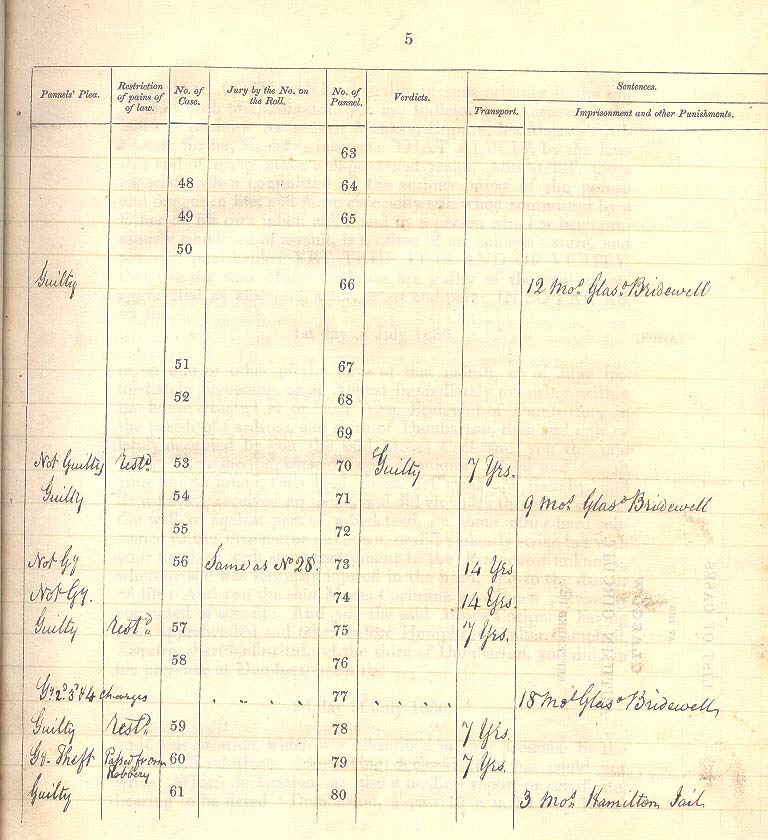 5
Pannels' Plea. Restriction of pains of of law. No. of Case. Jury by the No. on the Roll. No. of Pannel. Verdicts. Sentences.
Transport. Imprisonment and other Punishments.
63
48 64
49 65
50
Guilty 66 12 Mos. Glaso. Bridewell
51 67
52 68
69
Not Guilty Restd. 53 70 Guilty 7 Yrs.
Guilty 54 71 9 Mos. Glaso. Bridewell
55 72
Not Gy 56 Same as No 28. 73 14 Yrs
Not Gy. 74 14 Yrs.
Guilty restd. 57 75 7 Yrs.
58 76
Gy 2d. 3d & 4 charges 77 18 Mos Glaso Bridewell
Guilty restd. 59 78 7 Yrs.
Gy- Theft Passed from Robbery 60 79 7 Yrs.
Guilty 61 80 3 Mos. Hamilton Jail